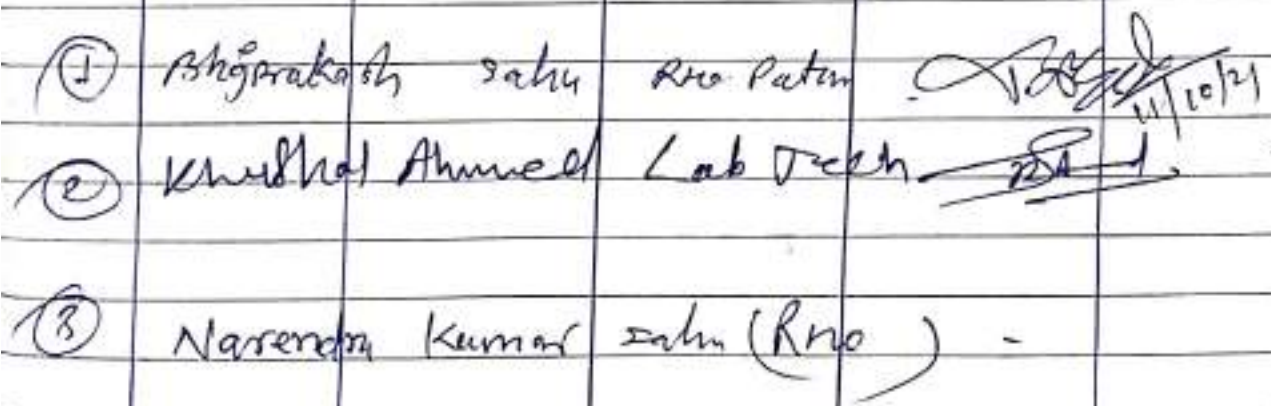 ① Bhojprakash Sahu RHO Patan 11/10/21
② Khushhal Ahmed Lab Tech
③ Narendra Kumar Sahu (RHO) -